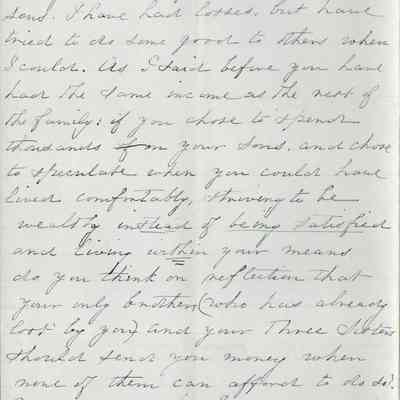 sons. I have had losses, but have
tried to do some good to others when
I could. As I said before you have
had the same income as the rest of
the family: if you chose to spend
thousands on your sons, and chose
to speculate when you could have
lived comfortably, striving to be
wealthy instead of being satisfied
and living within your means
do you think on reflection that
your only brother (who has already
lost by you) and your Three Sisters
should send you money when
none of them can afford to do so?